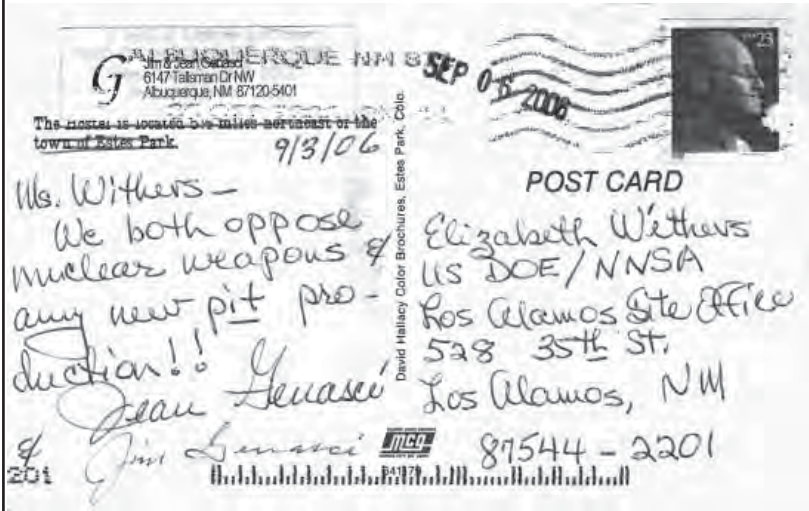 G
ALBUQUERQUE NM
Jim & Jean Genasci
6147 Talisman Dr NW
Albuquerque, NM 87120-5401
SEP 06 2006
23
The Hostel is located 5½ miles northeast of the
town of Estes Park.
9/3/06
Ms. Withers—
We both oppose
nuclear weapons &
any new pit pro-
duction!!
Jean Genasci
&
Jim Genasci
201
David Hallacy Color Brochures, Estes Park, Colo.
POST CARD
Elizabeth Withers
US DOE/NNSA
Los Alamos Site Office
528 35th St.
Los Alamos, NM
87544-2201